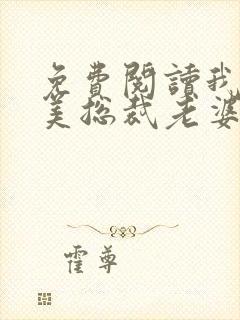 免費閱讀我
美总裁老婆
霍尊